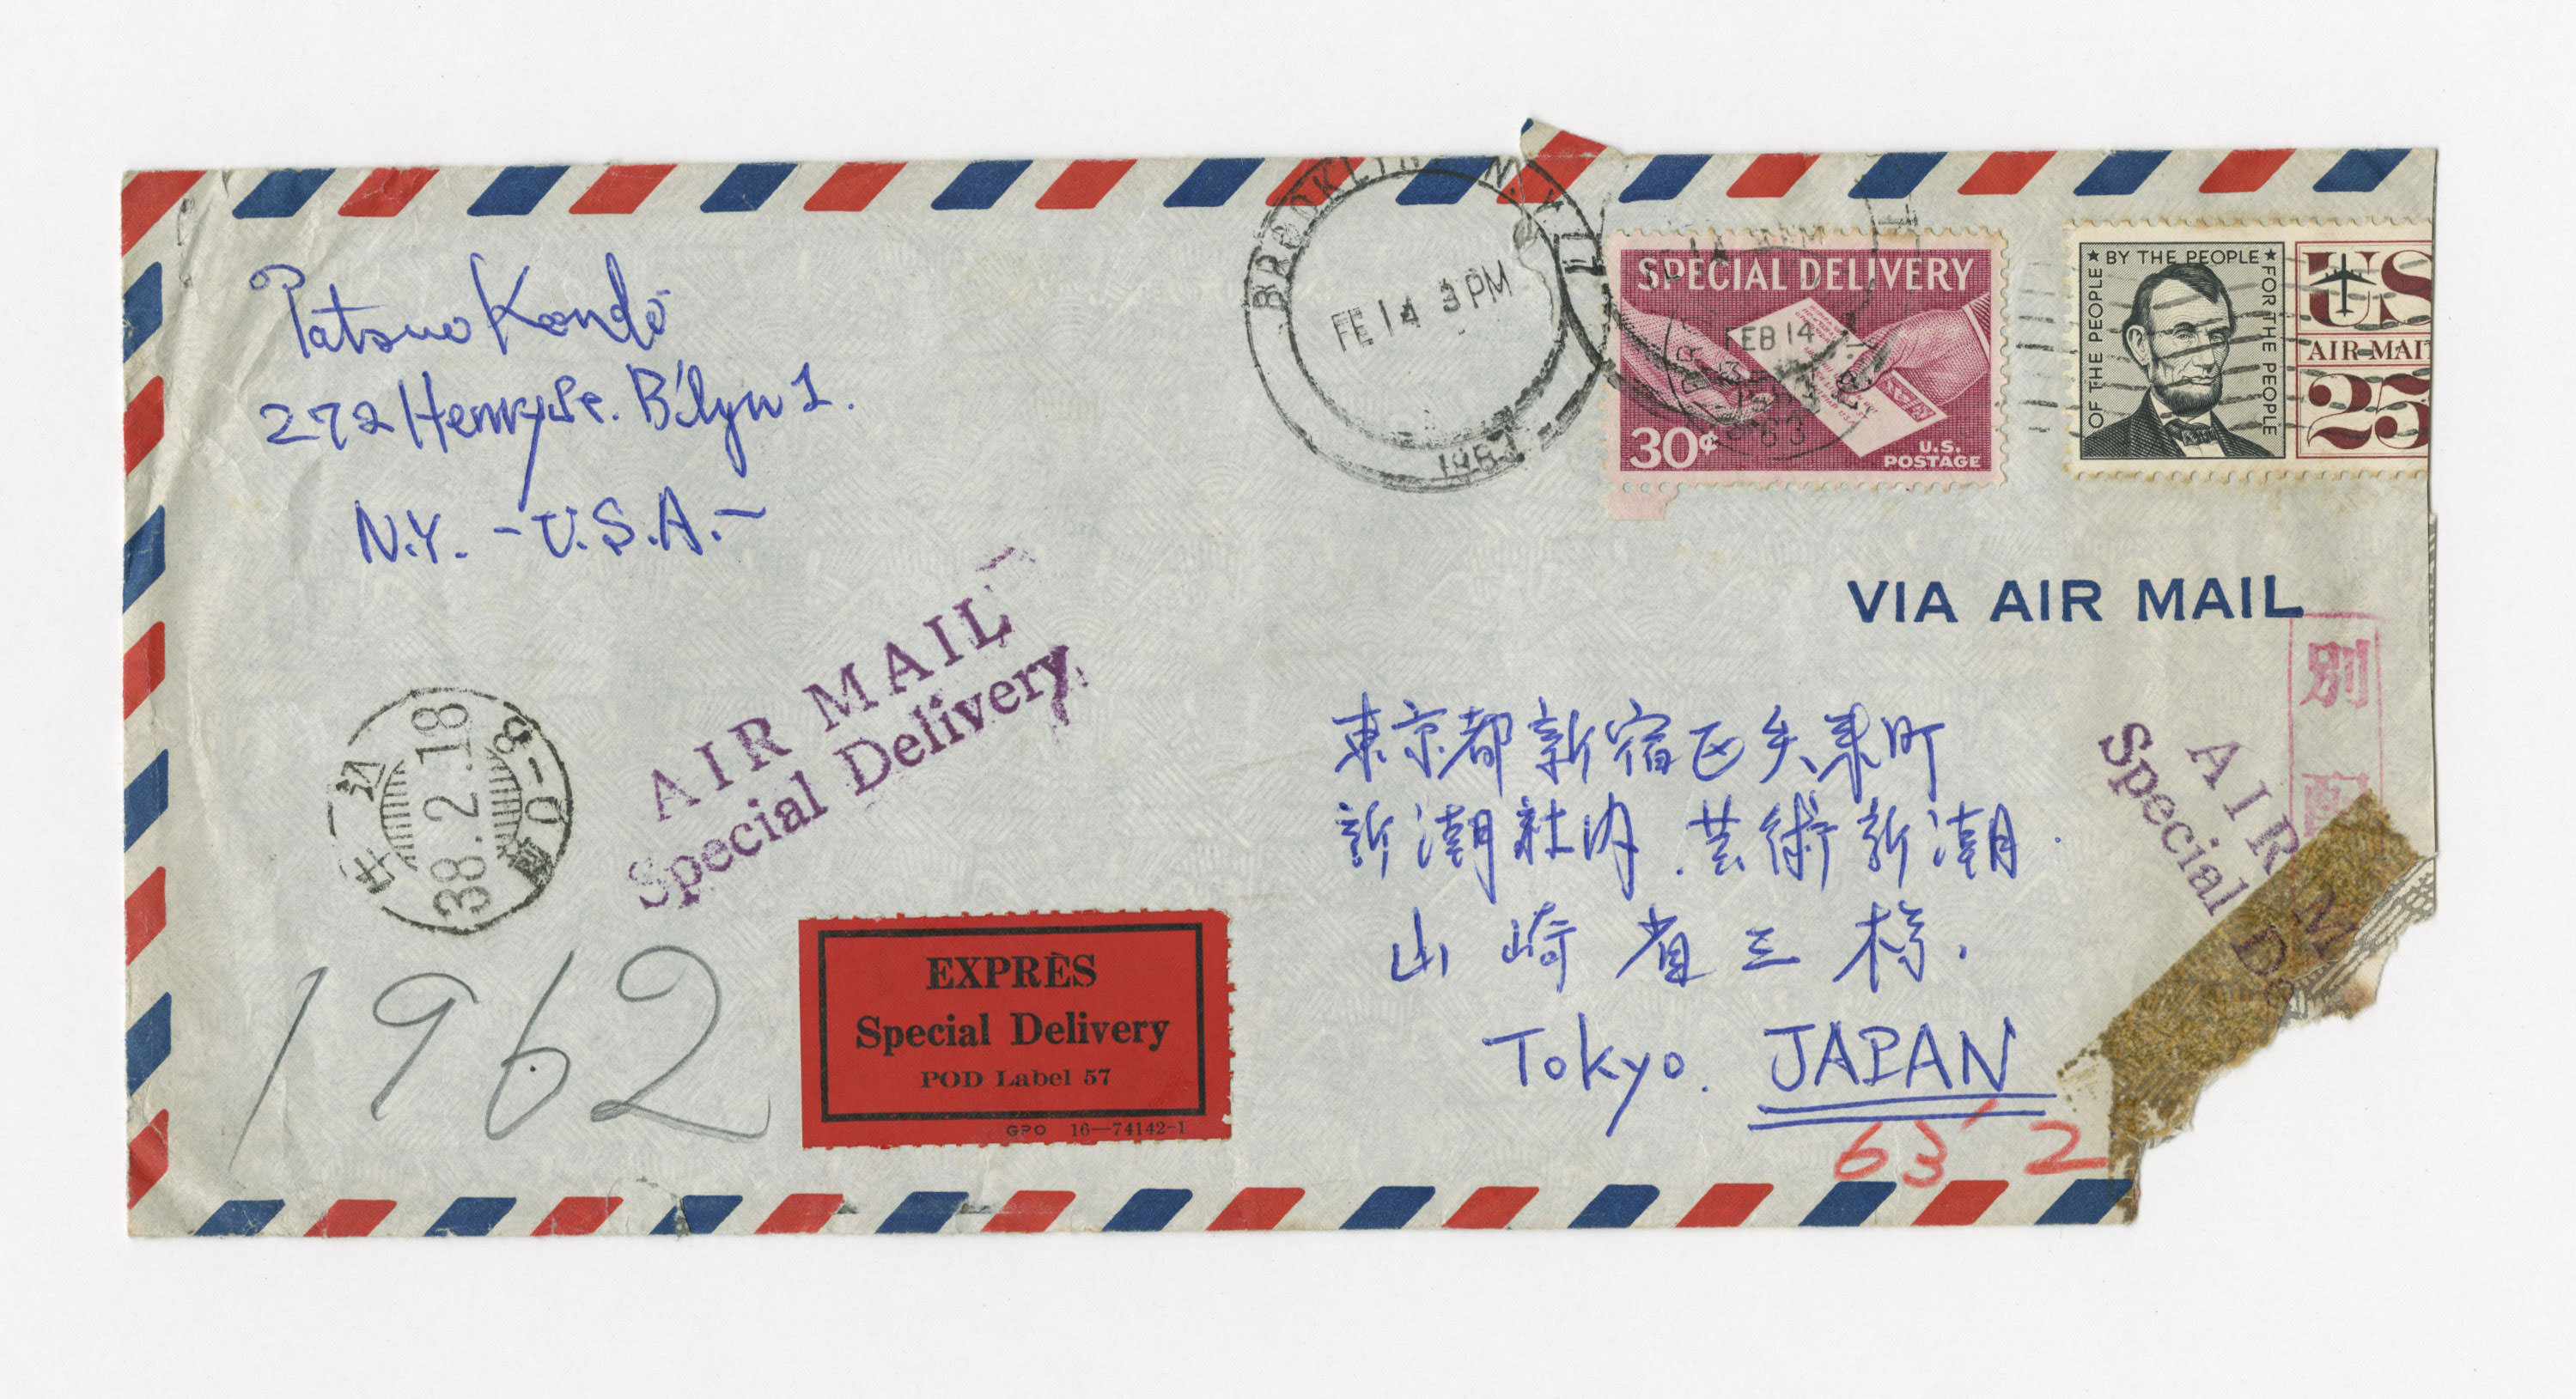 Tatsuo Kondō
272 Henry St. B'lyn 1.
N.Y. - U.S.A. -
BROOKLYN N.Y.
FE 14 3 PM
SPECIAL DELIVERY
FEB 14
63
30¢
U.S. POSTAGE
OF THE PEOPLE ★ BY THE PEOPLE ★ FOR THE PEOPLE
US
AIR MAI
25
VIA AIR MAIL
別
配
AIR MAIL
Special Delivery
AIR M
Special De
38.2.18
8-0
東京都新宿区矢来町
新潮社内 芸術新潮.
山崎省三様.
Tokyo. JAPAN
63' 2
1962
EXPRÈS
Special Delivery
POD Label 57
GPO 16—74142-1